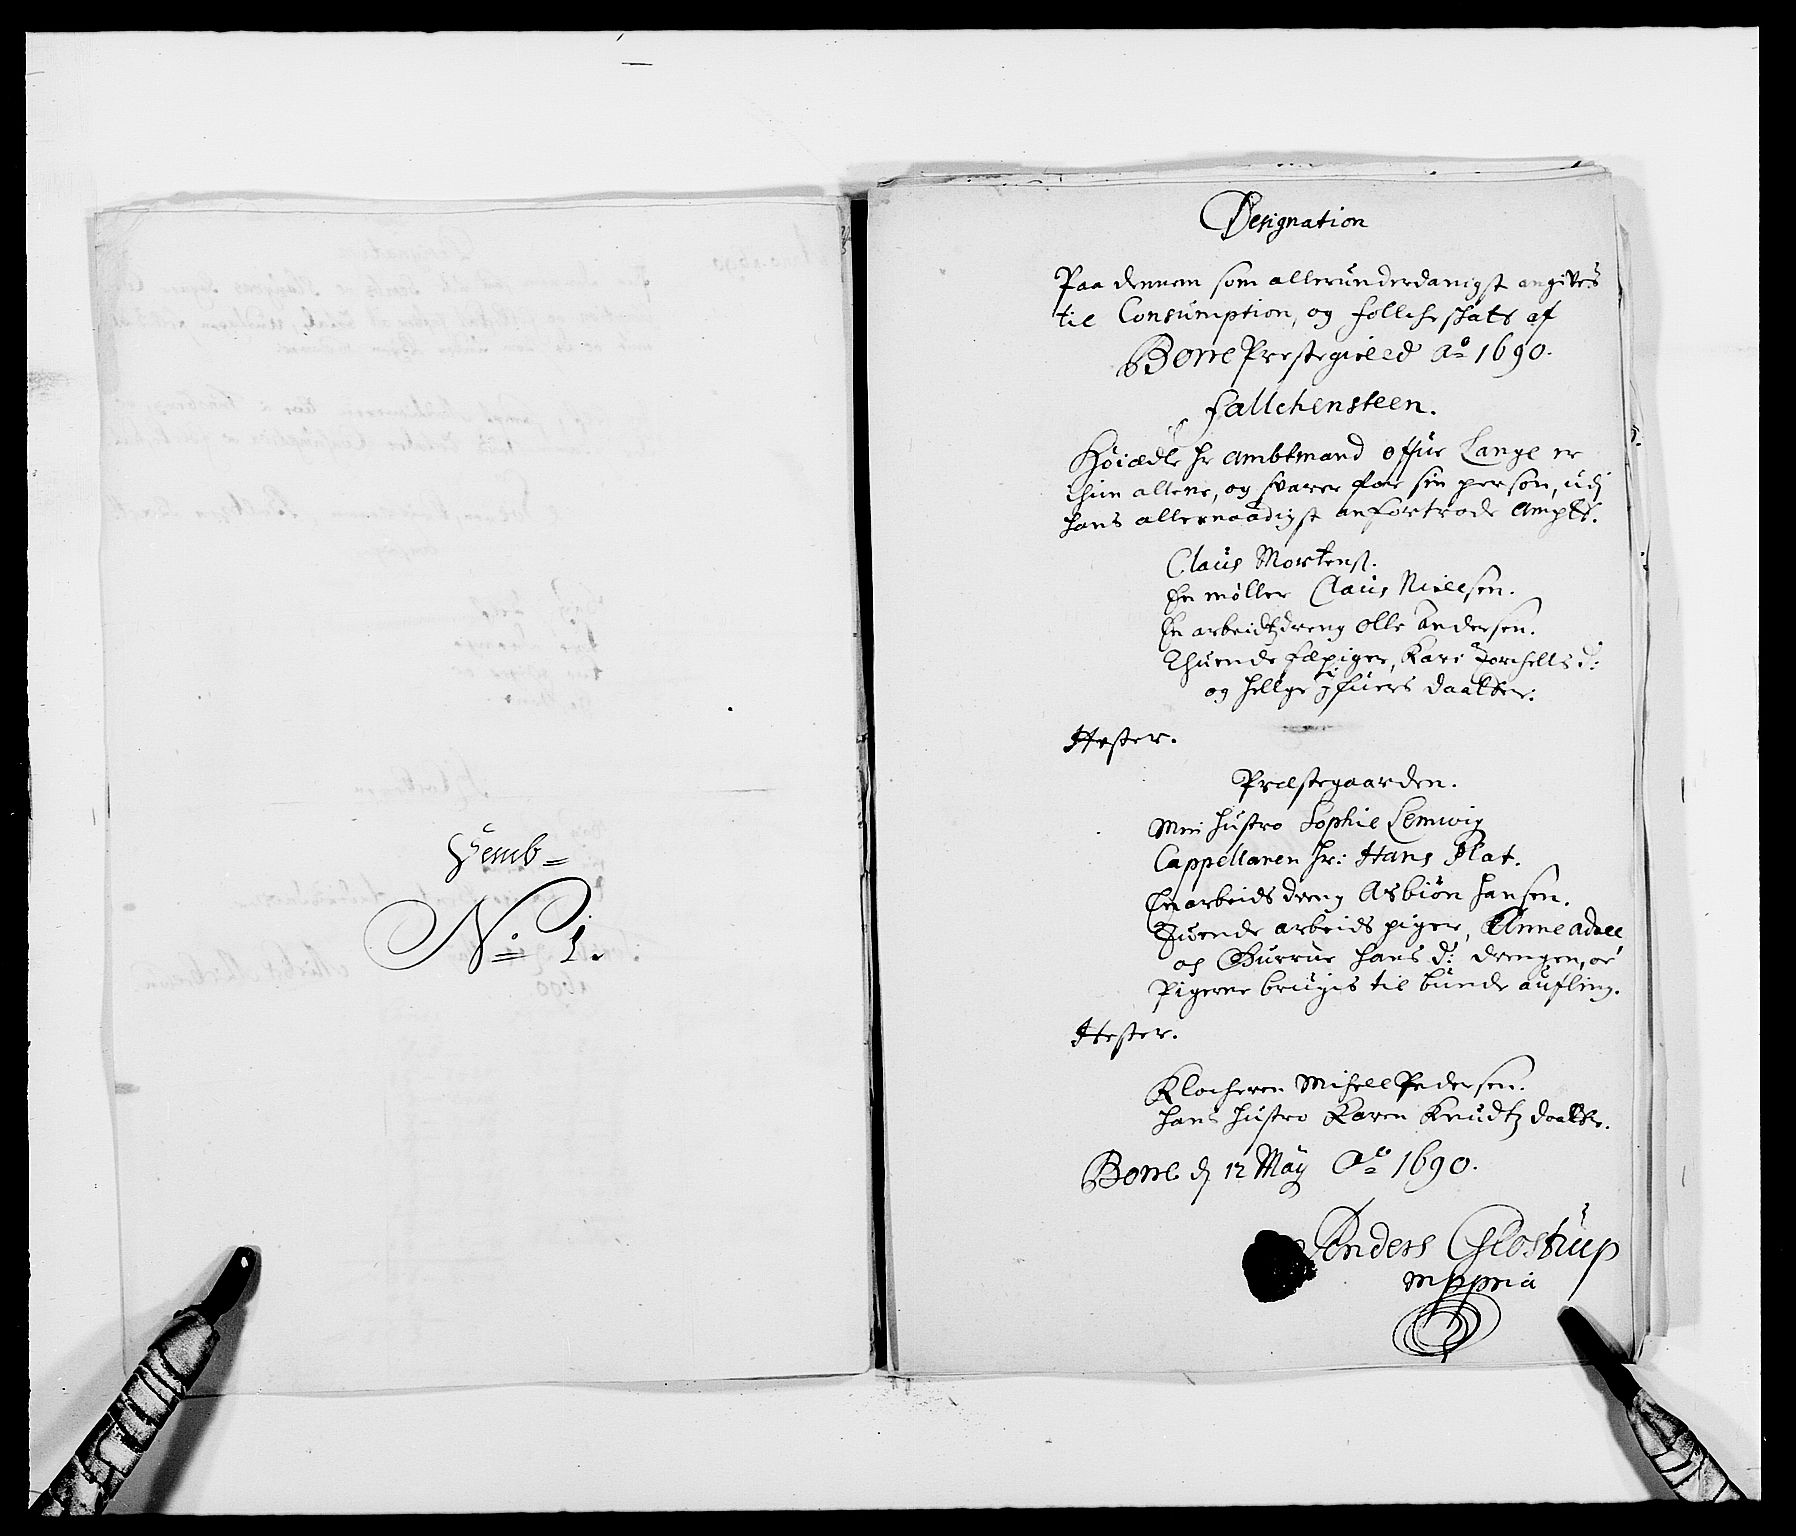 Semb =
No 1.
Designation
Paa dennem som allerunderdanigst angives
til Consumption, og follche skats af
Borre Prestegieeld Ao 1690.
Fallchensteen.
Høiædle hr Ambtmand Lange er
thun allene, og svarer for sin person, udj
hans allernaadigst anfortrode Ampt.
Claus Mortens.
En møller Claus Nielsen.
En arbeidtzdreng Olle Andersen.
Thuende fæpiger, Kari Torchells d:
og Helge daatter.
Hester.
Præstegaarden.
Min hustro Sophie Lemvig
Cappellanen hr: Hans Plat.
En arbeids dreng Asbiøn Hansen.
Tuende arbeids piger, Anne
og Gurrue Hans d: drengen, oc
Pigerne brugis til bunde aufling.
Hester.
Klocheren Michell Pedersen.
hans hustro Karen Knudtz daatter.
Borre d 12 Maÿ Ao 1690.
Anders Glostrup
mppria